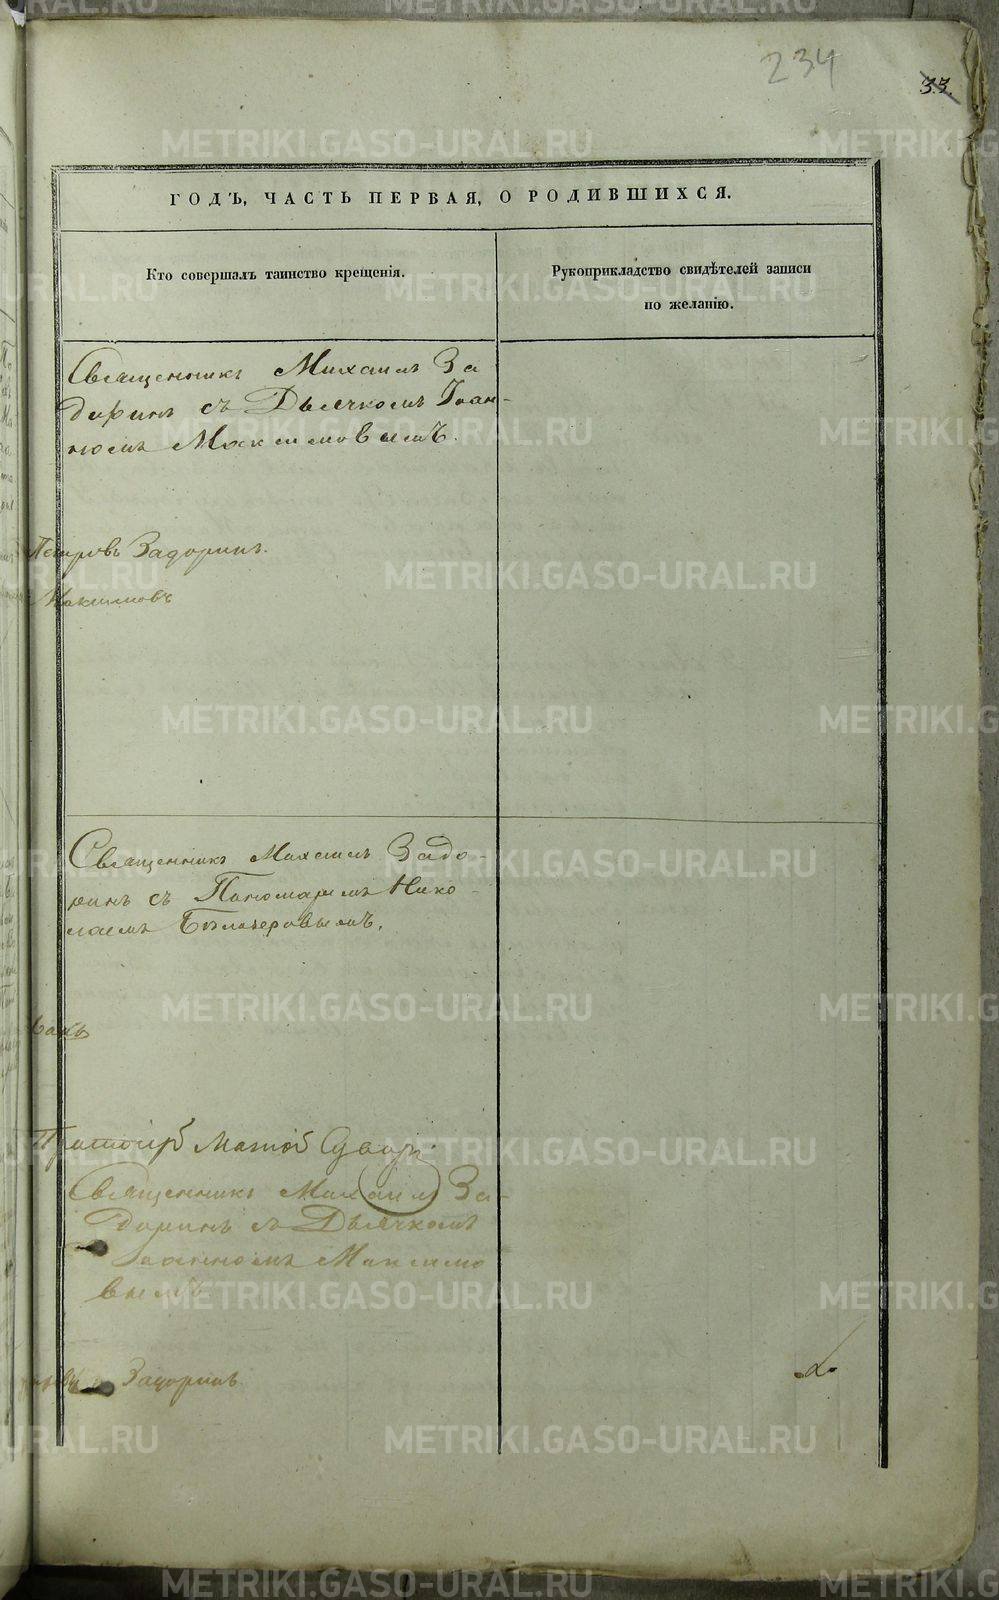 234
33.
ГОДЪ, ЧАСТЬ ПЕРВАЯ, О РОДИВШИХСЯ.
Кто совершалъ таинство крещенія.
Рукоприкладство свидѣтелей записи
по желанію.
Священникъ Михаилъ За
доринъ съ Дьячкомъ Іоан-
номъ Максимовымъ.
Петровъ Задоринъ.
Максимовъ
Священникъ Михаилъ Задо-
ринъ съ Пономаремъ Нико-
лаемъ Бѣлозеровымъ.
Священникъ Михаилъ За-
доринъ съ Дьячкомъ
Іоанномъ Максимо
вымъ
Задоринъ
METRIKI.GASO-URAL.RU